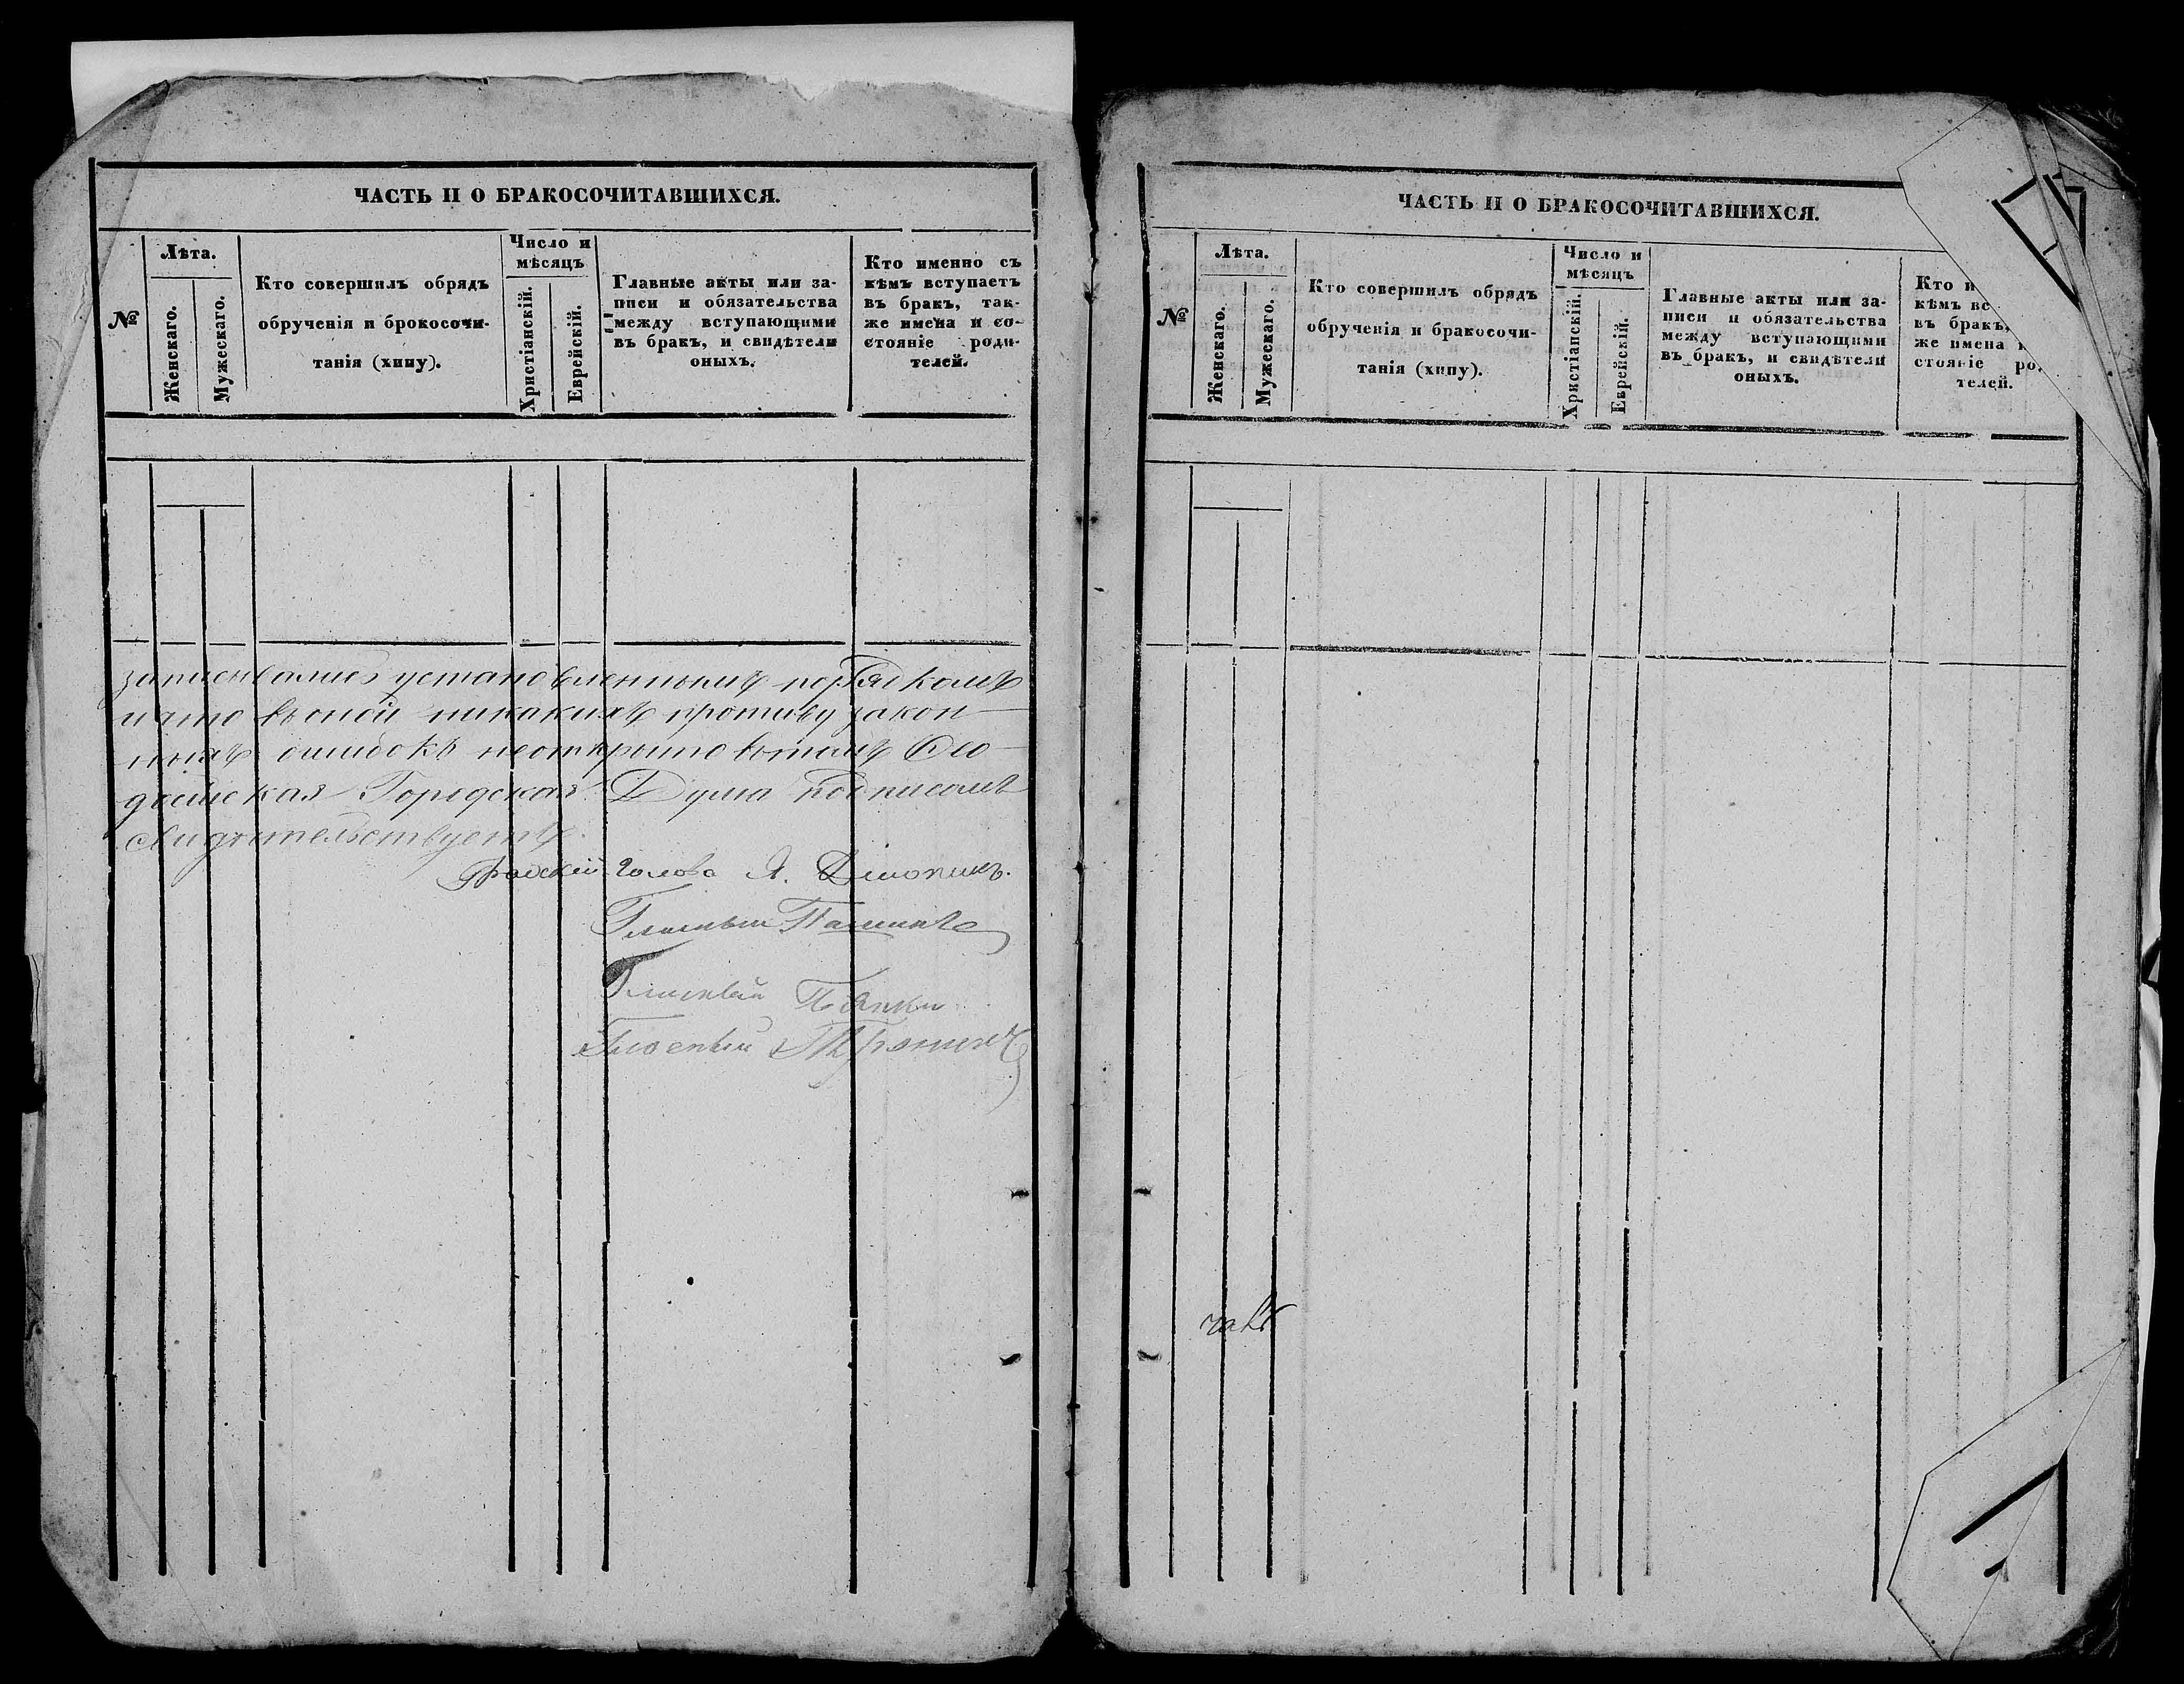 ЧАСТЬ II О БРАКОСОЧИТАВШИХСЯ.
№
Лѣта.
Женскаго.
Мужескаго.
Кто совершилъ обрядъ
обрученія и брокосочи-
танія (хипу).
Число и
мѣсяцъ
Христіанскій.
Еврейскій.
Главные акты или за-
писи и обязательства
между вступающими
въ бракъ, и свидѣтели
оныхъ.
Кто именно съ
кѣмъ вступаетъ
въ бракъ, так-
же имена и со-
стояніе роди-
телей.
записывались установленнымъ порядкомъ
и что въ оной никакихъ противузакон-
ныхъ ошибокъ неоткрыто вътомъ Ѳео-
досійская Городская Дума подписомъ
свидѣтельствуетъ.
Градскій Голова
Гласный
Гласный
Гласный
ЧАСТЬ II О БРАКОСОЧИТАВШИХСЯ.
№
Лѣта.
Женскаго.
Мужескаго.
Кто совершилъ обрядъ
обрученія и бракосочи-
танія (хипу).
Число и
мѣсяцъ
Христіанскій.
Еврейскій.
Главные акты или за-
писи и обязательства
между вступающими
въ бракъ, и свидѣтели
оныхъ.
Кто и
кѣмъ вс
въ бракъ,
же имена
стояніе ро
телей.